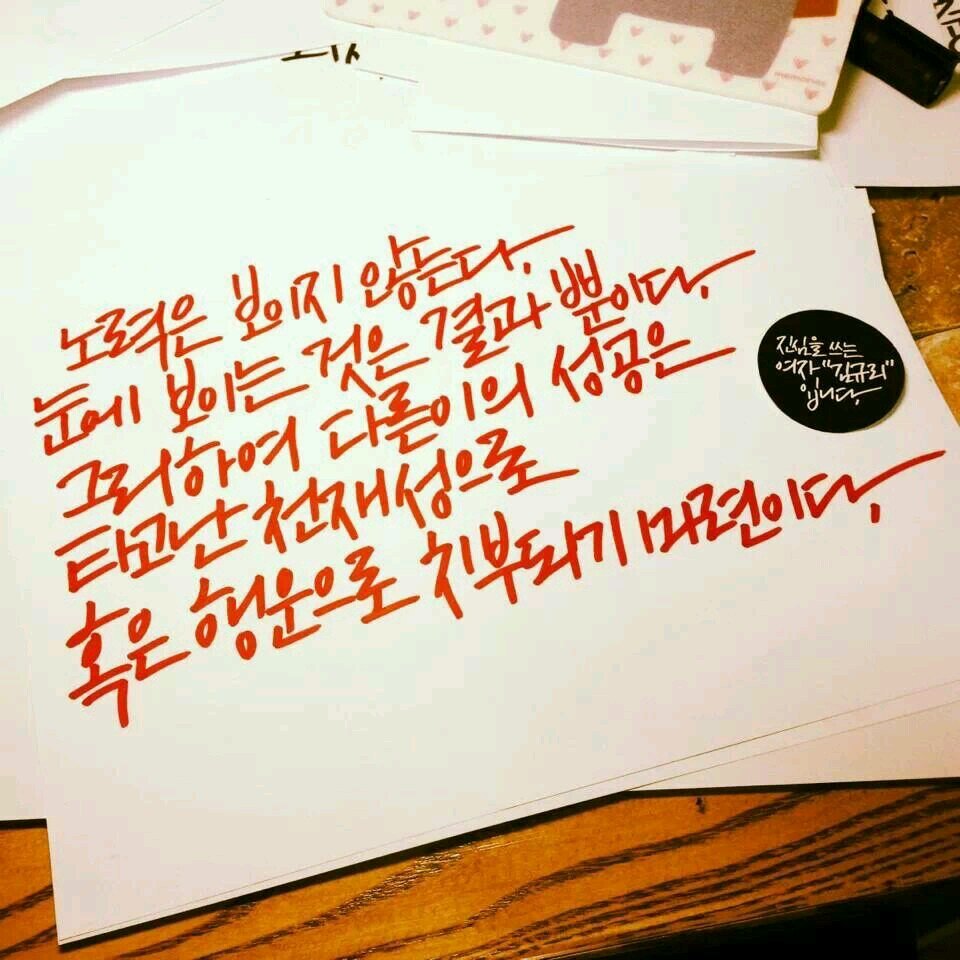 노력은 보이지 않는다.
눈에 보이는 것은 결과 뿐이다.
그리하여 다른이의 성공은
타고난 천재성으로
혹은 행운으로 치부되기 마련이다.
진심을 쓰는
여자 "김규리"
입니다.